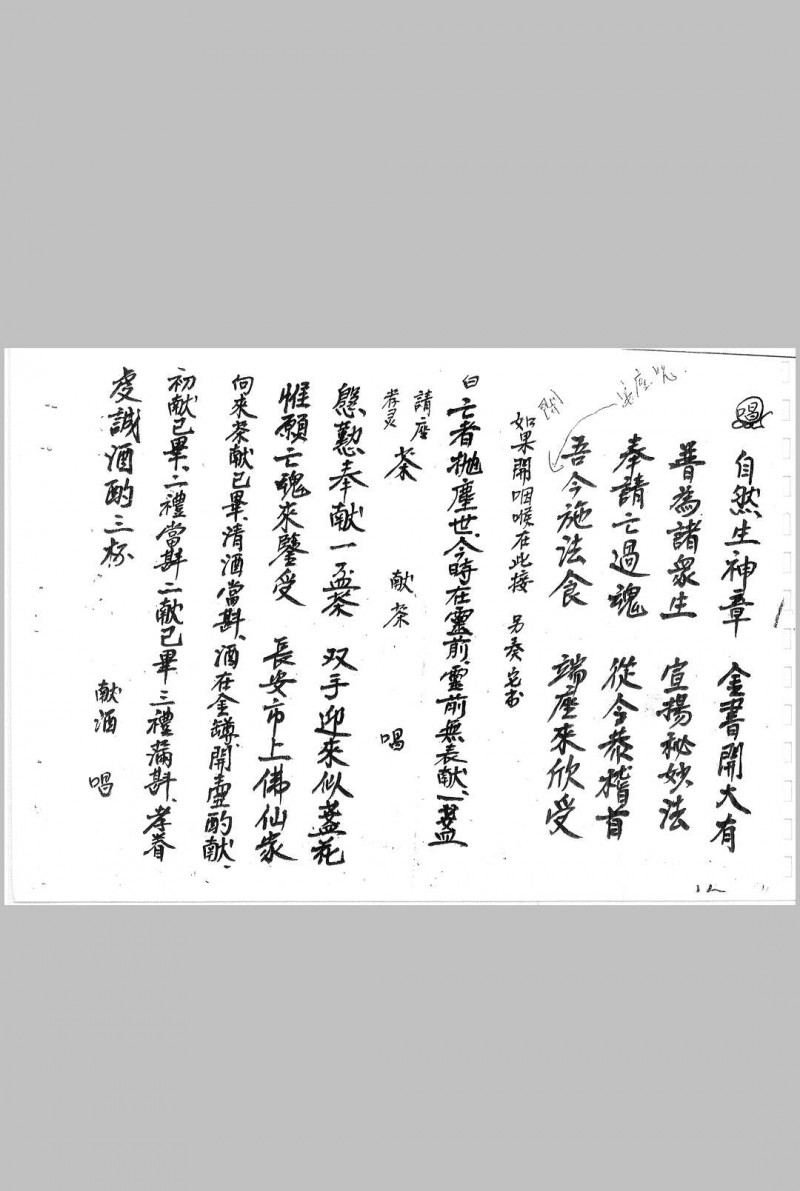 唱
自然生神章　金書開大有
普為諸衆生　宣揚秘妙法
奉請亡過魂　從今恭稽首
吾今施法食　端座来欣受
如果開咽喉在此接
白亡者抛塵世、今時在靈前、靈前無表献、一盞
請座
茶　献茶　唱
慇懃奉献一盃茶　双手迎来似盞花
惟願亡魂来鑒受　長安市上佛仙家
向来茶献已畢、清酒當斟、酒在金罇、開壷酌献、
初献已畢、二禮當斟二献已畢三禮滿斟、孝眷
虔誠酒酌三杯　献酒　唱